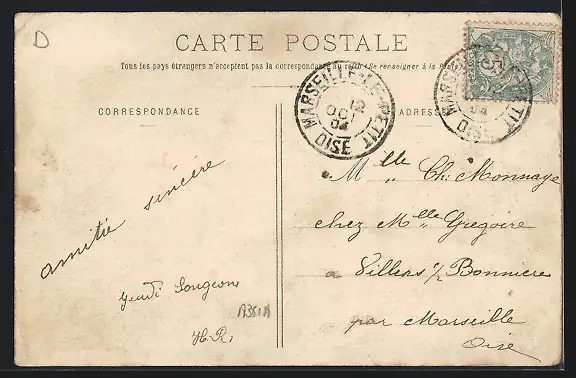 D
CARTE POSTALE
Tous les pays étrangers n'acceptent pas la correspondance au recto (Se renseigner à la Poste)
CORRESPONDANCE
ADRESSE
MARSEILLE-LE-PETIT
12
OCT
04
OISE
MARSEILLE PETIT
04
OISE
5
amitié sincère
Jeudi Songeons
H.R.
A351A
Mlle Ch. Monnaye
chez Mlle Gregoire
a Villers s/ Bonniere
par Marseille
Oise